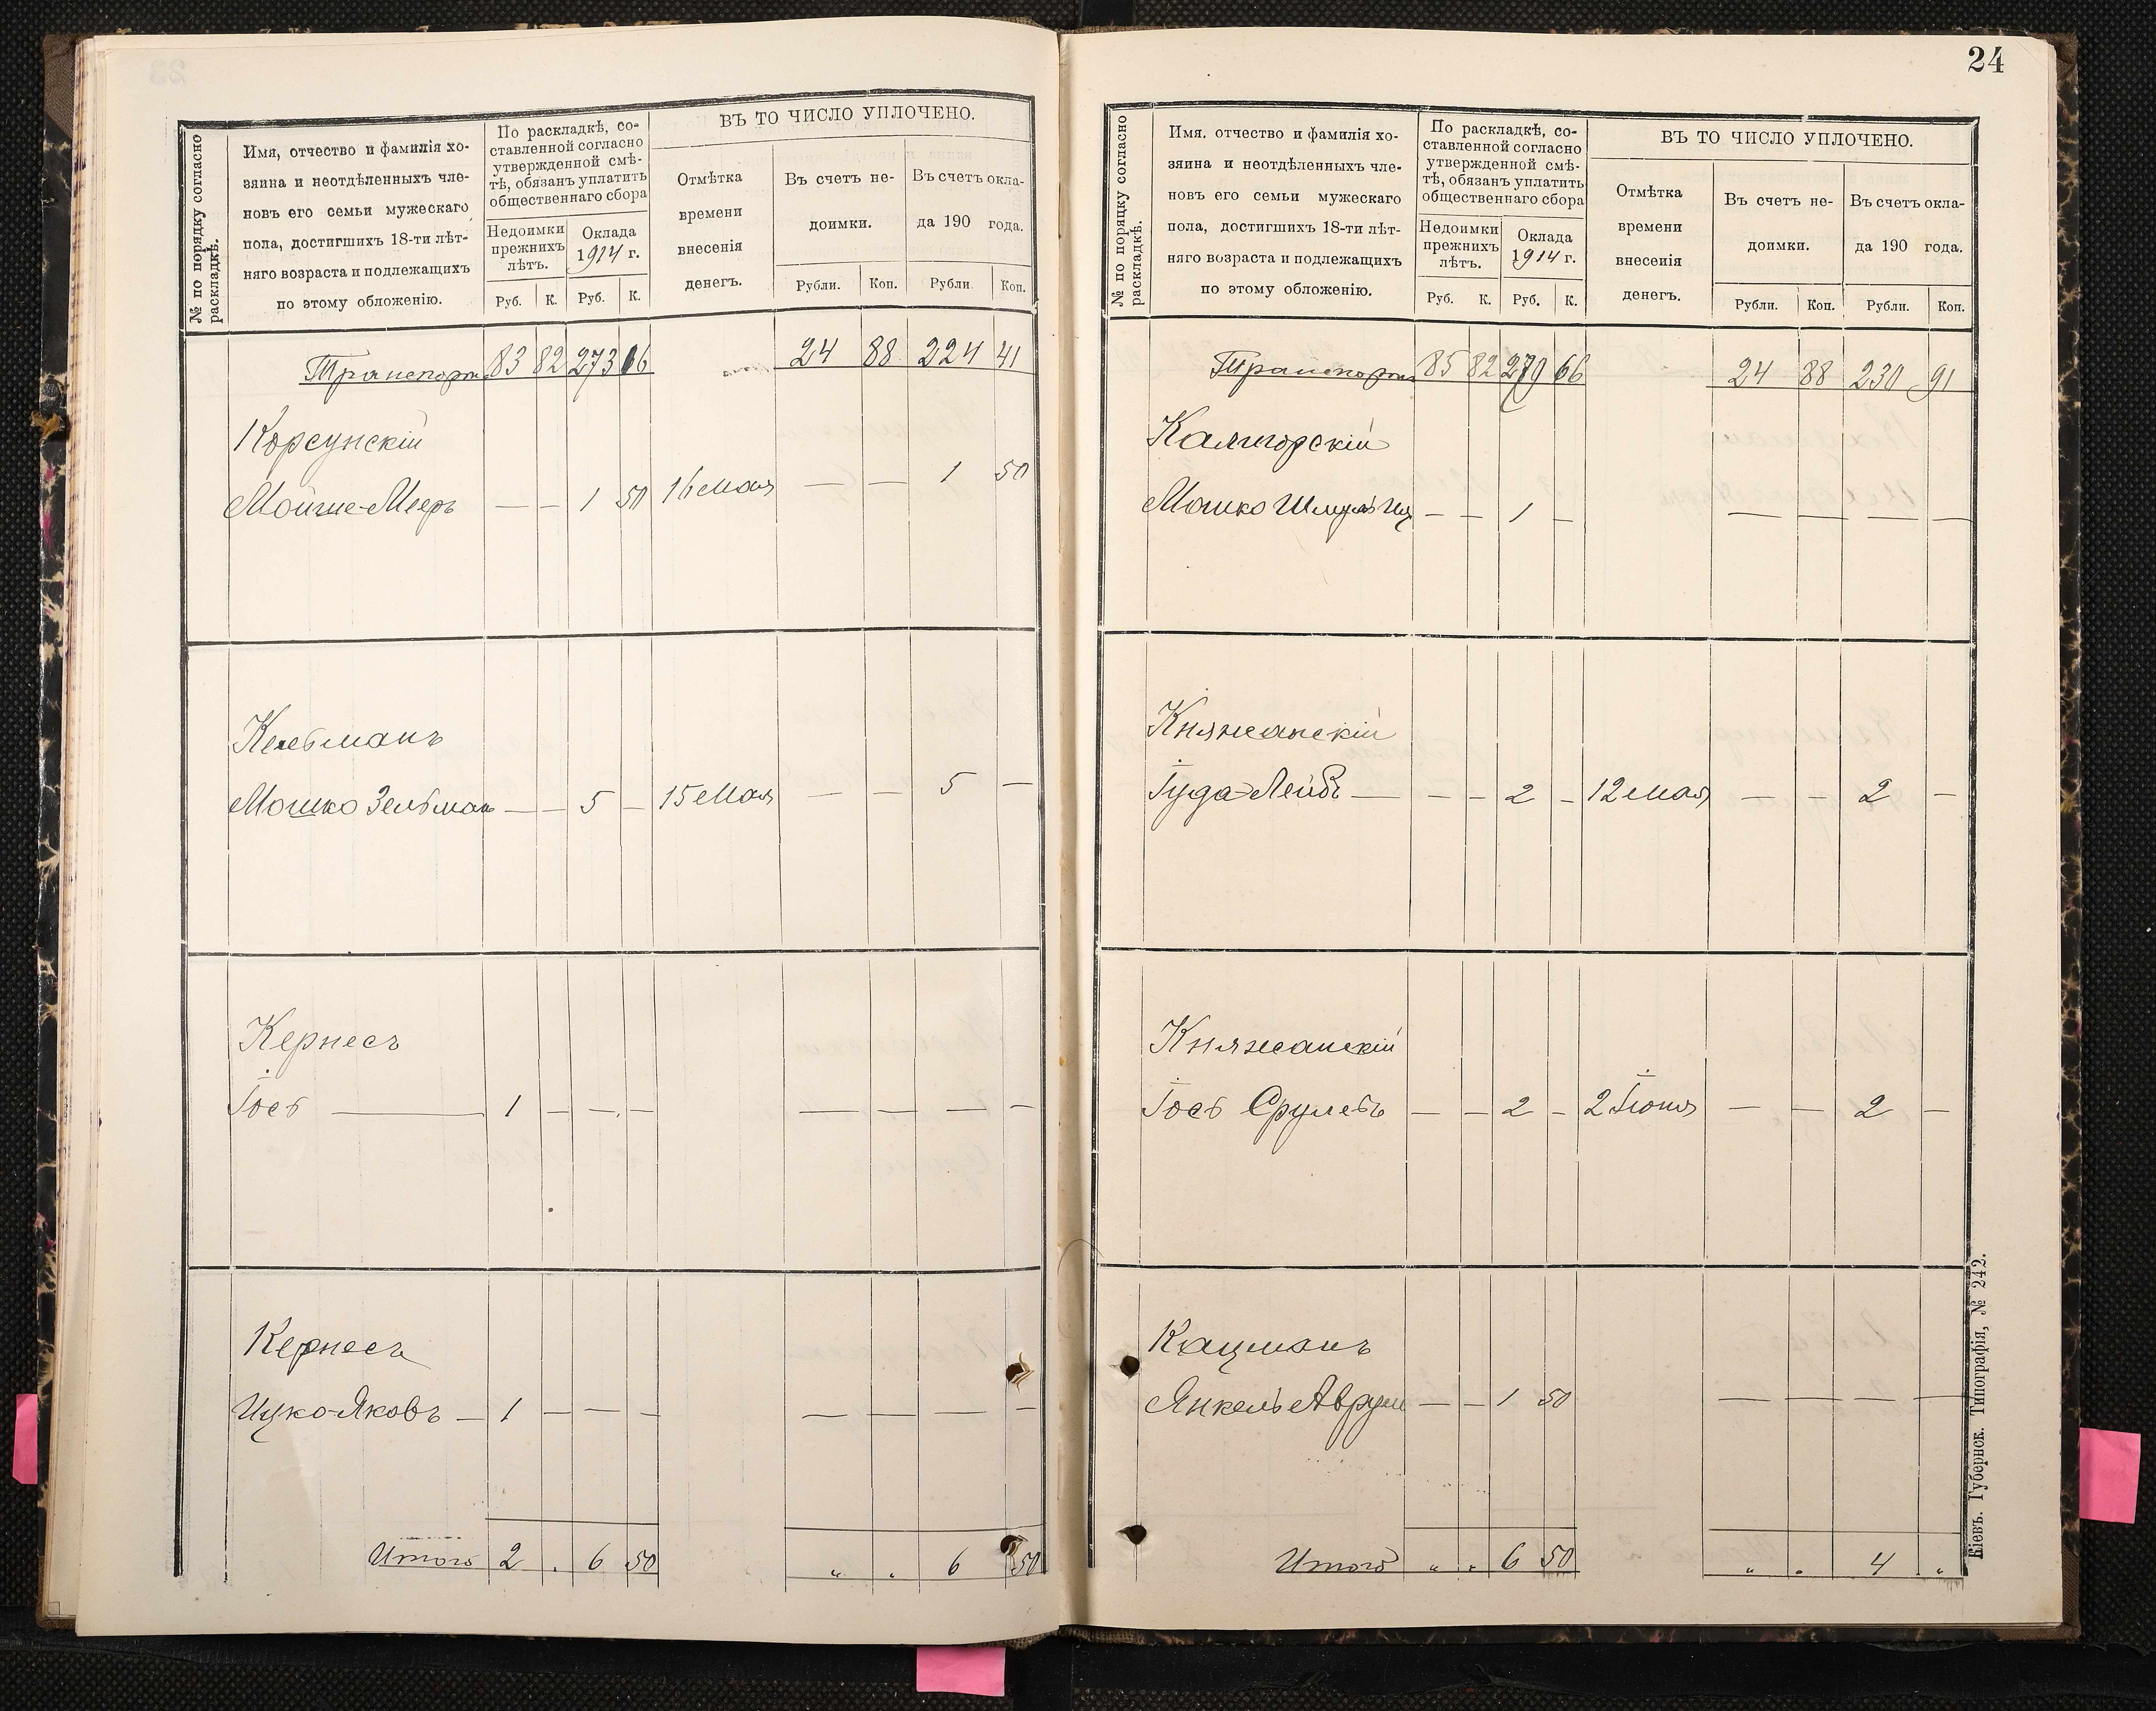 № по порядку согласно раскладкѣ.
Имя, отчество и фамилія хо-
зяина и неотдѣленныхъ чле-
новъ его семьи мужескаго
пола, достигшихъ 18-ти лѣт-
няго возраста и подлежащихъ
по этому обложенію.
По раскладкѣ, со-
ставленной согласно
утвержденной смѣ-
тѣ, обязанъ уплатить
общественнаго сбора
Недоимки
прежнихъ
лѣтъ.
Оклада
1914 г.
Руб. К. Руб. К.
ВЪ ТО ЧИСЛО УПЛОЧЕНО.
Отмѣтка
времени
внесенія
денегъ.
Въ счетъ не-
доимки.
Въ счетъ окла-
да 190 года.
Рубли. Коп. Рубли. Коп.
Транспортъ 83 82 273 16 24 88 224 41
Корсунскій
Мойше-Мееръ — — 1 50 16 Мая — — 1 50
Кельманъ
Мошко Зельман — — 5 — 15 Мая — — 5 —
Кернесъ
Іось — 1 — — — — — — —
Кернесъ
Ицко-Яковъ — 1 — — — — — — —
Итого 2 . 6 50 „ . 6 50
24
№ по порядку согласно раскладкѣ.
Имя, отчество и фамилія хо-
зяина и неотдѣленныхъ чле-
новъ его семьи мужескаго
пола, достигшихъ 18-ти лѣт-
няго возраста и подлежащихъ
по этому обложенію.
По раскладкѣ, со-
ставленной согласно
утвержденной смѣ-
тѣ, обязанъ уплатить
общественнаго сбора
Недоимки
прежнихъ
лѣтъ.
Оклада
1914 г.
Руб. К. Руб. К.
ВЪ ТО ЧИСЛО УПЛОЧЕНО.
Отмѣтка
времени
внесенія
денегъ.
Въ счетъ не-
доимки.
Въ счетъ окла-
да 190 года.
Рубли. Коп. Рубли. Коп.
Транспортъ 85 82 279 66 24 88 230 91
Калигорскій
Мошко Шмуль — — 1 — — — — —
Княжанскій
Іуда-Лейбъ — — — 2 — 12 Мая — — 2 —
Княжанскій
Іось Срулевъ — — 2 — 2 Іюня — — 2 —
Кацманъ
Янкель Аврум — — 1 50 — — — —
Итого „ „ 6 50 „ . 4 „
Кіевъ. Губернск. Типографія, № 242.